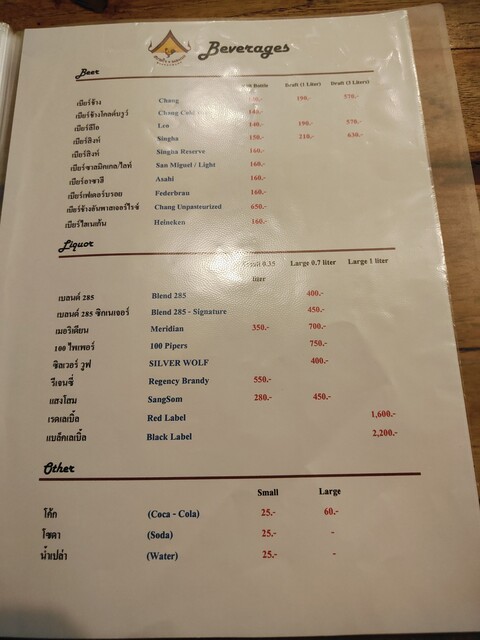 Beverages
Beer
Bottle Draft (1 Liter) Draft (3 Liters)
เบียร์ช้าง Chang 190.- 570.-
เบียร์ช้างโคลด์บรูว์ Chang Cold
เบียร์ลีโอ Leo 140.- 190.- 570.-
เบียร์สิงห์ Singha 150.- 210.- 630.-
เบียร์สิงห์ Singha Reserve 160.-
เบียร์ซานมิเกล/ไลท์ San Miguel / Light 160.-
เบียร์อาซาฮี Asahi 160.-
เบียร์เฟดเดอร์บรอย Federbrau 160.-
เบียร์ช้างอันพาสเจอร์ไรซ์ Chang Unpasteurized 650.-
เบียร์ไฮเนเก้น Heineken 160.-
Liquor
0.35 liter Large 0.7 liter Large 1 liter
เบลนด์ 285 Blend 285 400.-
เบลนด์ 285 ซิกเนเจอร์ Blend 285 - Signature 450.-
เมอริเดียน Meridian 350.- 700.-
100 ไพเพอร์ 100 Pipers 750.-
ซิลเวอร์ วูฟ SILVER WOLF 400.-
รีเจนซี่ Regency Brandy 550.-
แสงโสม SangSom 280.- 450.-
เรดเลเบิ้ล Red Label 1,600.-
แบล็คเลเบิ้ล Black Label 2,200.-
Other
Small Large
โค้ก (Coca - Cola) 25.- 60.-
โซดา (Soda) 25.- -
น้ำเปล่า (Water) 25.- -